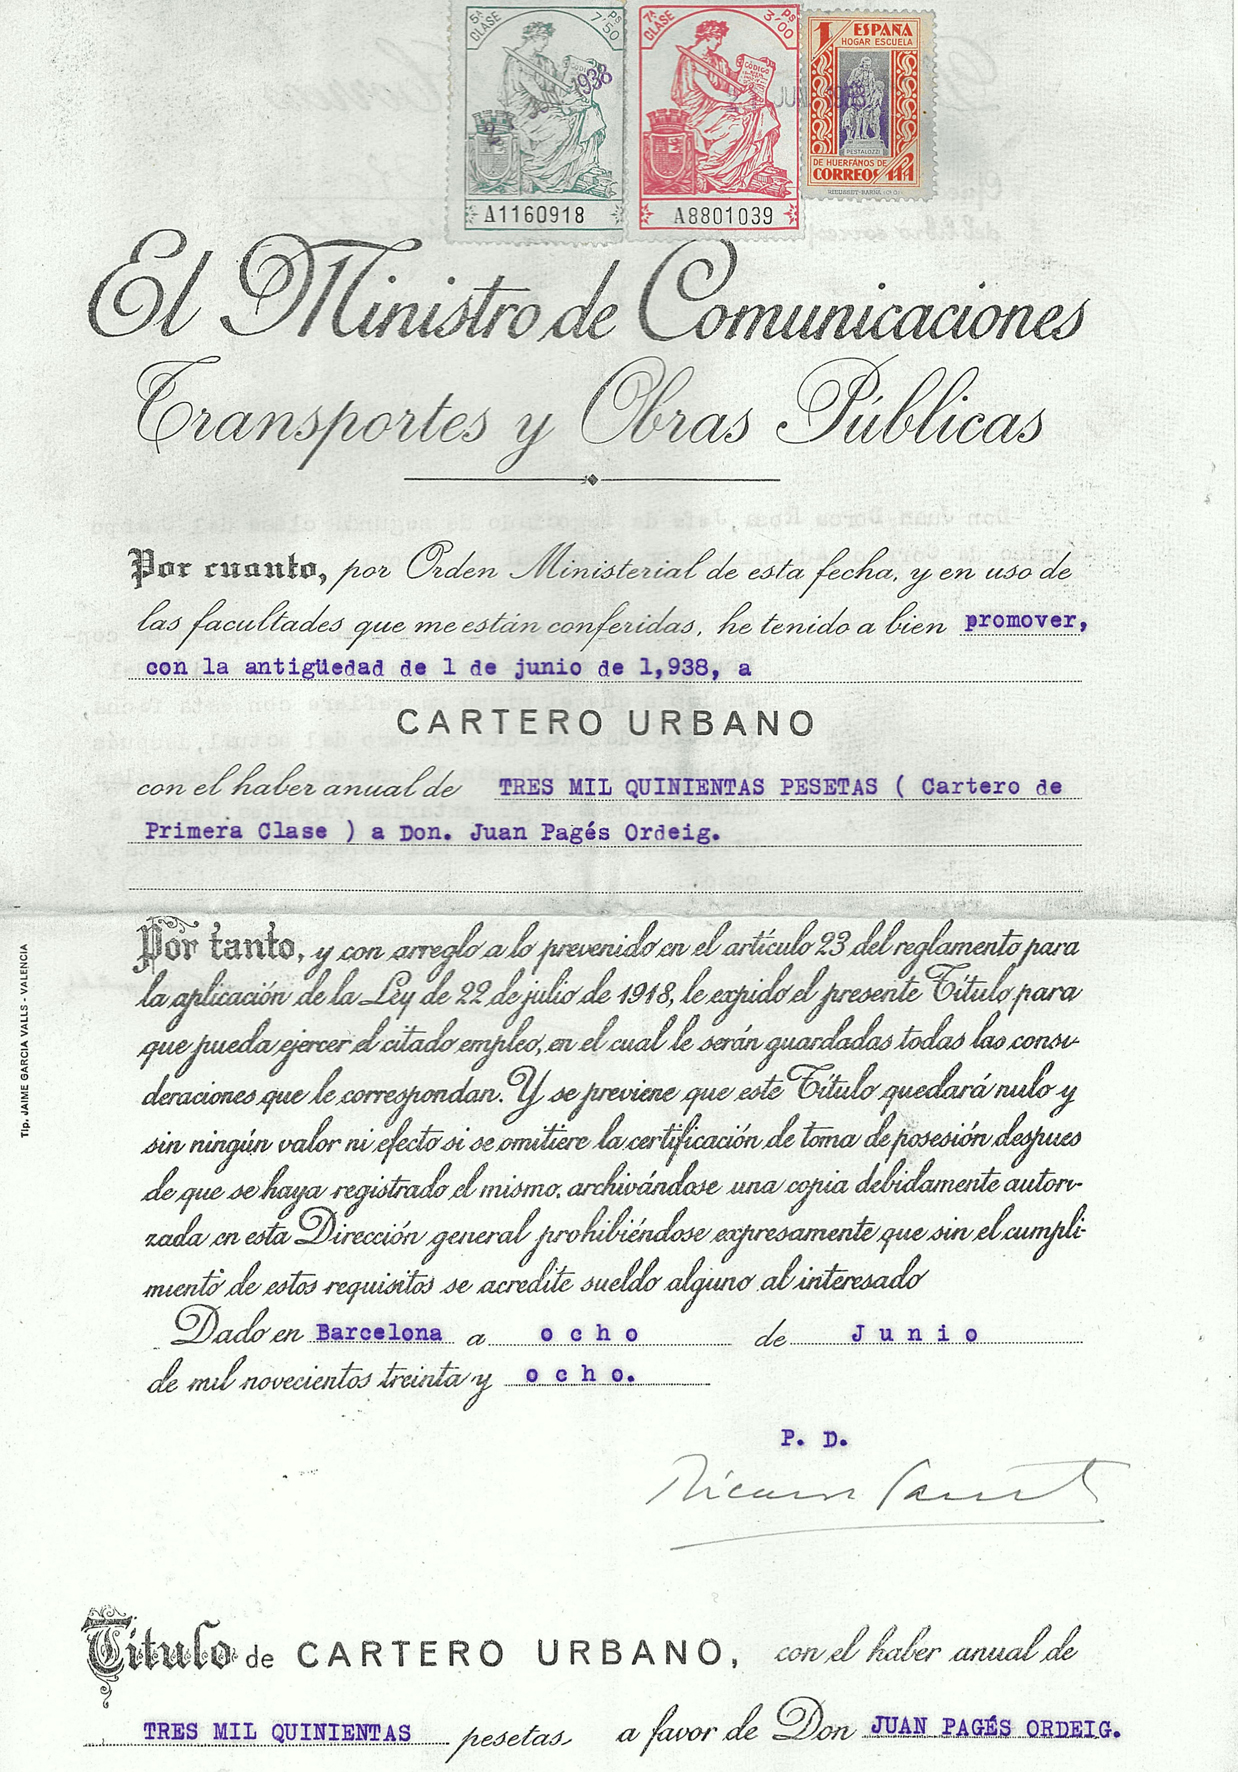 5ª CLASE
Ps 7'50
1938
A1160918
7ª CLASE
Ps 3'00
CÓDIGO
JUN 1938
A8801039
1 ESPAÑA
HOGAR ESCUELA
PESTALOZZI
DE HUERFÁNOS DE
CORREOS
RIEUSSET-BARNA
El Ministro de Comunicaciones
Transportes y Obras Públicas
Por cuanto, por Orden Ministerial de esta fecha, y en uso de
las facultades que me están conferidas, he tenido a bien promover,
con la antigüedad de 1 de junio de 1,938, a
CARTERO URBANO
con el haber anual de TRES MIL QUINIENTAS PESETAS ( Cartero de
Primera Clase ) a Don. Juan Pagés Ordeig.
Por tanto, y con arreglo a lo prevenido en el artículo 23 del reglamento para
la aplicación de la Ley de 22 de julio de 1918, le expido el presente Título para
que pueda ejercer el citado empleo, en el cual le serán guardadas todas las consi-
deraciones que le correspondan. Y se previene que este Título quedará nulo y
sin ningún valor ni efecto si se omitiere la certificación de toma de posesión despues
de que se haya registrado el mismo, archivándose una copia debidamente autori-
zada en esta Dirección general prohibiéndose expresamente que sin el cumpli-
miento de estos requisitos se acredite sueldo alguno al interesado
Dado en Barcelona a ocho de Junio
de mil novecientos treinta y ocho.
P. D.
Título de CARTERO URBANO, con el haber anual de
TRES MIL QUINIENTAS pesetas a favor de Don JUAN PAGÉS ORDEIG.
Tip. JAIME GARCIA VALLS - VALENCIA